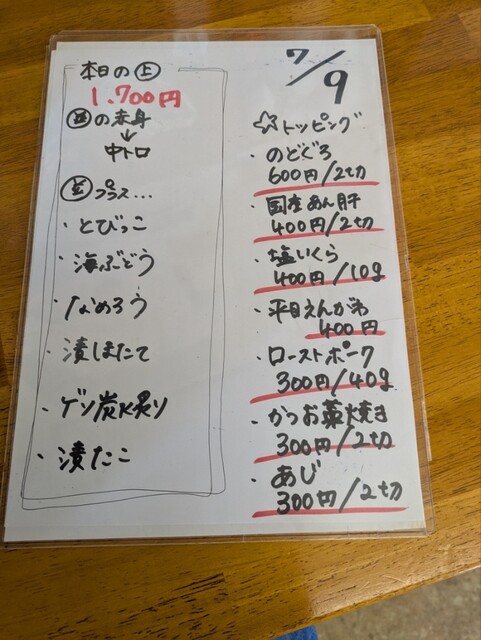 本日の㊤
1.700円
並の赤身
↓
中トロ
並プラス…
・とびっこ
・海ぶどう
・なめろう
・漬しまたて
・ゲソ炭火炙り
・漬たこ
7/9
☆トッピング
・のどぐろ
600円/2切
・国産あん肝
400円/2切
・塩いくら
400円/10g
・平目えんがわ
400円
・ローストポーク
300円/40g
・かつお藁焼き
300円/2切
・あじ
300円/2切